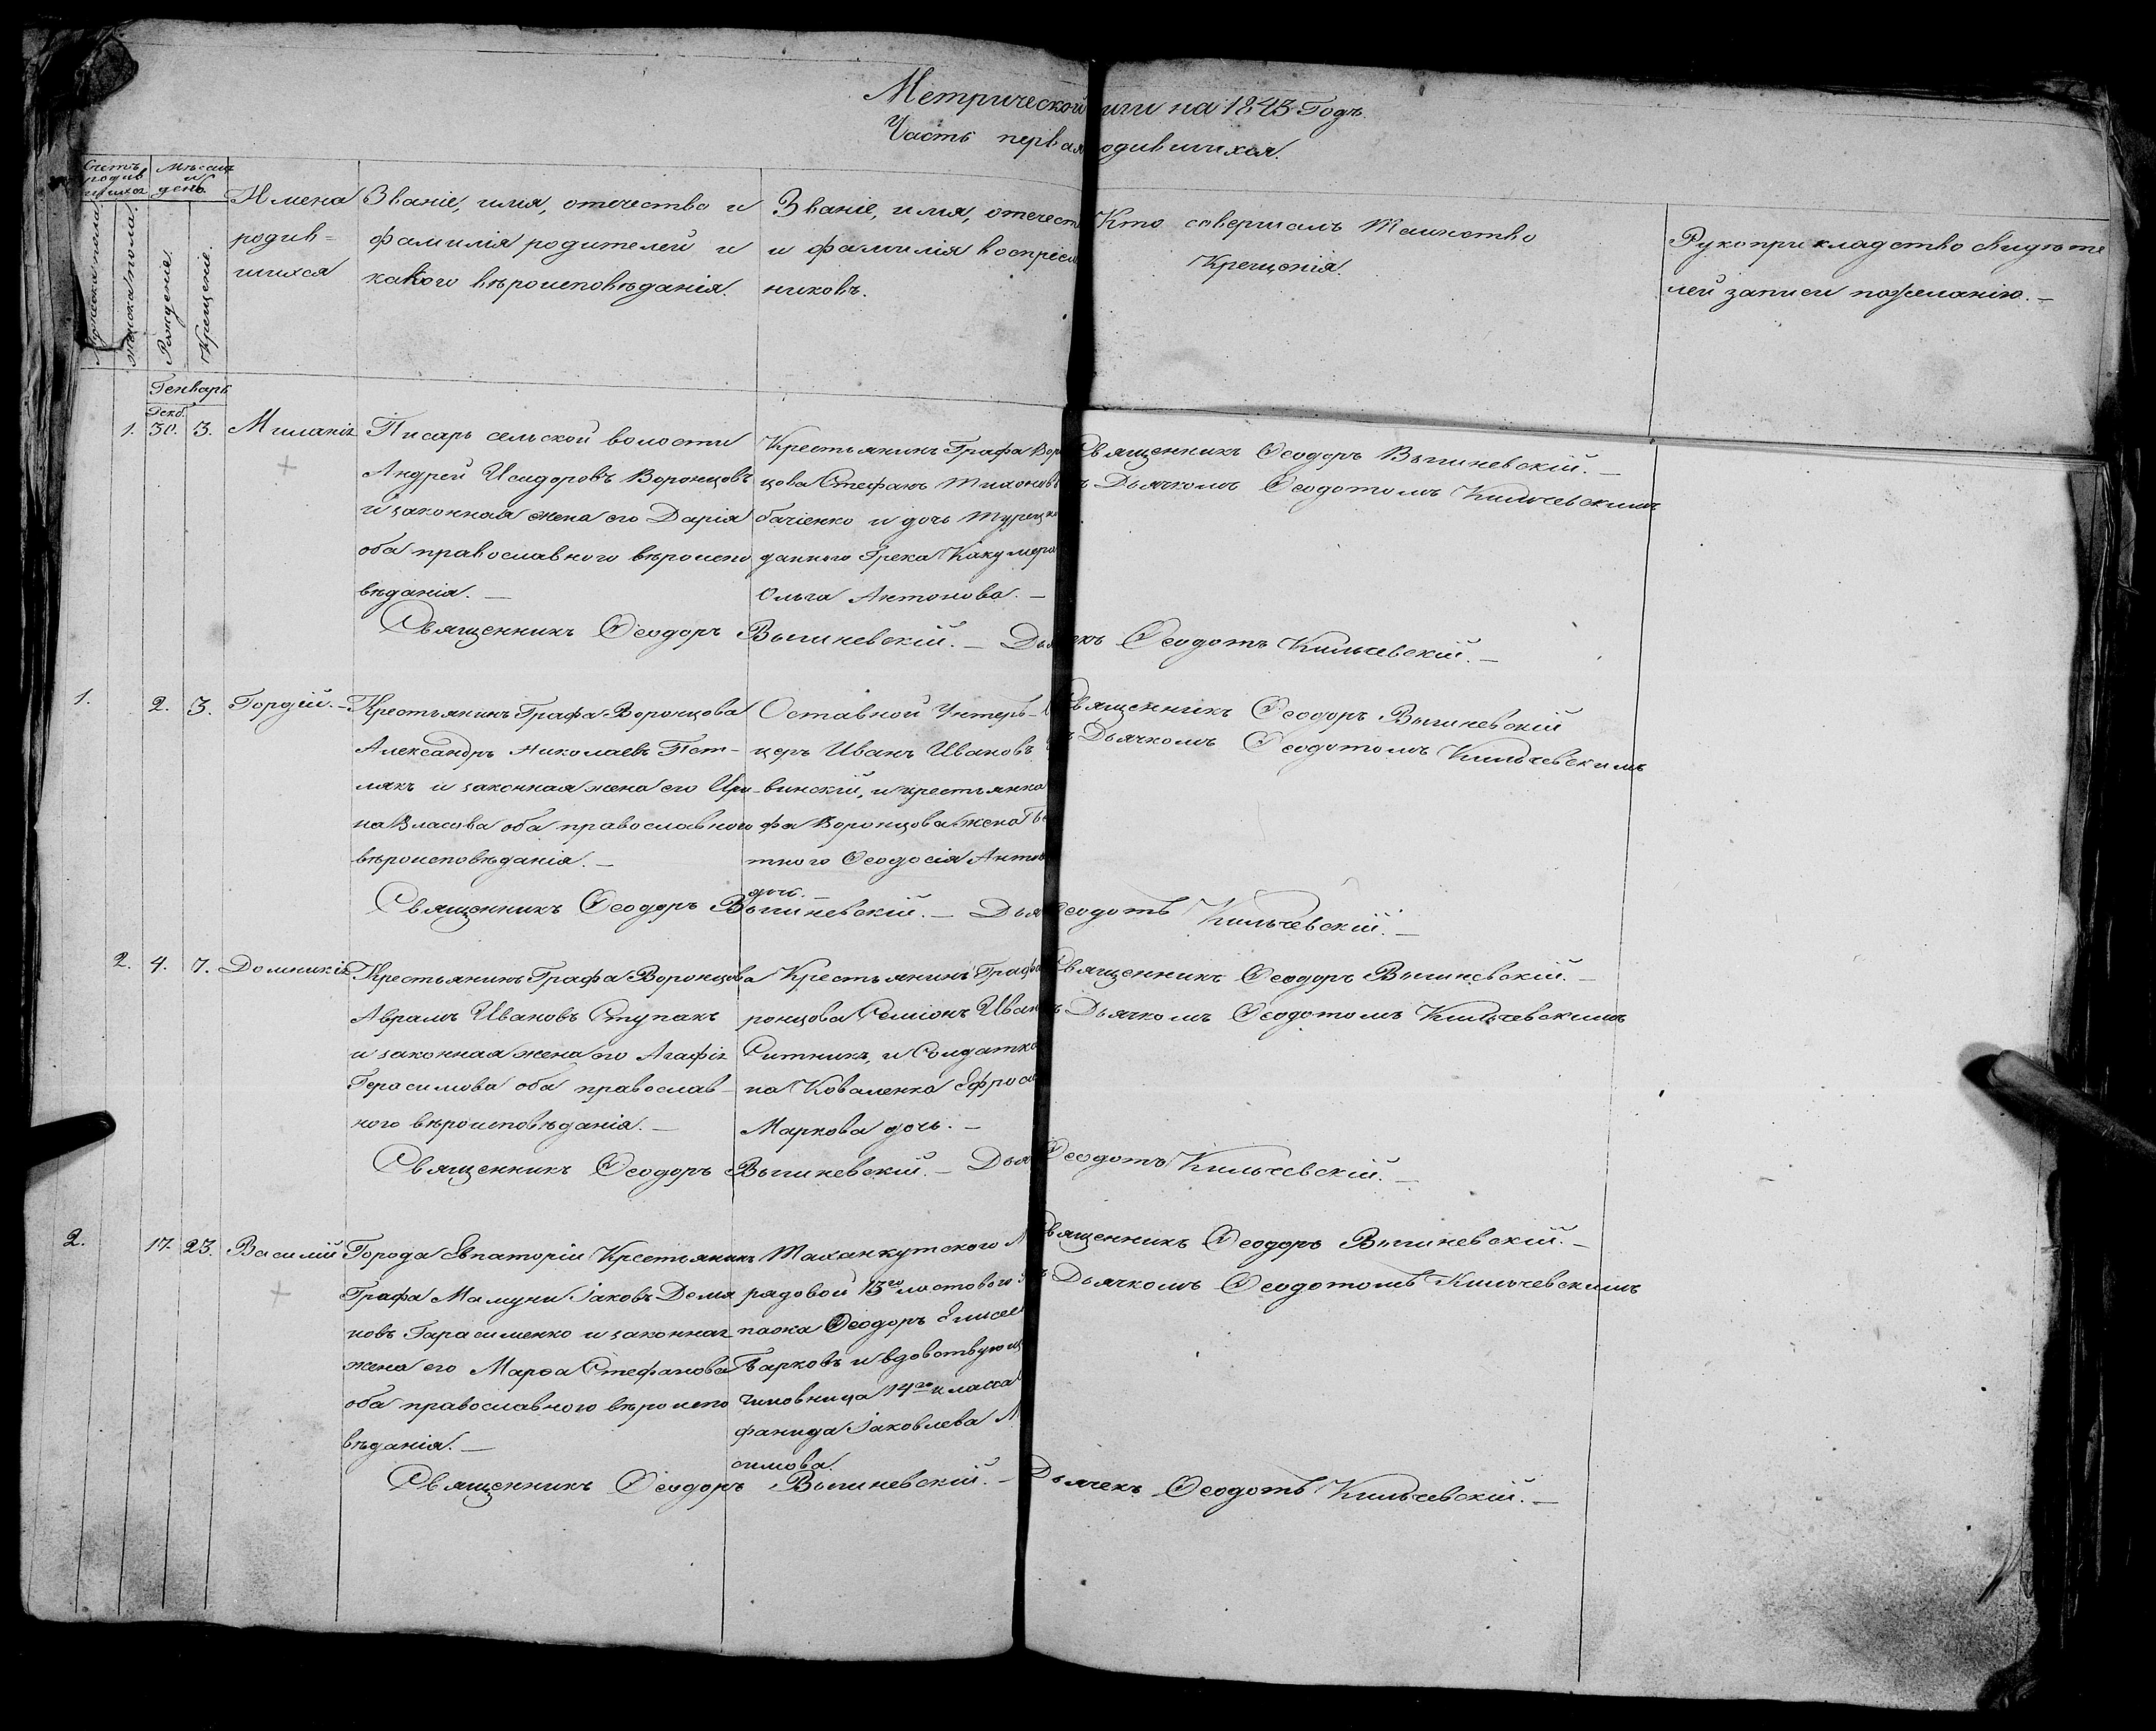 Метрической иги на 1843 Годъ.
Часть первая одившихся.
Счетъ родив шихся
Мѣсяцъ и день.
Мужеска пола
женска пола.
Рожденіе.
Крещеніе.
Имена
родив=
шихся
Званіе, имя, отечество и
фамилія родителей и
какого вѣроисповѣданія.
Званіе, имя, отечест
и фамилія воспріем
никовъ.
Кто совершалъ Таинство
Крещенія.
Рукоприкладство свидѣте
лей записи пожеланію. —
Генварь
Декб.
1. 30. 3. Миланія
Писарь сельской волости
Андрей Исидоровъ Воронцовъ
и законная жена его Дарія
оба православного вѣроиспо
вѣданія. —
Крестьянинъ Графа Вор
цова Стефанъ Тихоновъ
баченко и дочь Турецк
данного Грека
Ольга Антонова. —
Священникъ Ѳеодоръ Вышневскій. —
ъ Дьячкомъ Ѳеодотомъ Кильчевскимъ
Священникъ Ѳеодоръ Вышневскій. — Дья екъ Ѳеодотъ Кильчевскій. —
1. 2. 3. Гордій. —
Крестьянинъ Графа Воронцова
Александръ Николаевъ Пет-
лякъ и законная жена его Ири-
на Власова оба православного
вѣроисповѣданія. —
Оставной Унтеръ-
церъ Иванъ Ивановъ
винскій, и крестьянка
фа Воронцова жена
тного Ѳеодосія Антон
дочь. —
Священникъ Ѳеодоръ Вышневскій
ъ Дьячкомъ Ѳеодотомъ Кильчевскимъ
Священникъ Ѳеодоръ Вышневскій. — Дья Ѳеодотъ Кильчевскій. —
2. 4. 7. Домникія
Крестьянинъ Графа Воронцова
Аврамъ Ивановъ Ступакъ
и законная жена его Агафія
Герасимова оба православ-
ного вѣроисповѣданія. —
Крестьянинъ Графа
ронцова Семіонъ Иван
Ситникъ, и Солдатка
на Коваленка Ефроси
Маркова дочь. —
Священникъ Ѳеодоръ Вышневскій. —
ъ Дьячкомъ Ѳеодотомъ Кильчевскимъ
Священникъ Ѳеодоръ Вышневскій. — Дья Ѳеодотъ Кильчевскій. —
2. 17. 23. Василій
Города Евпаторіи Крестьянинъ
Графа Мамуни Іаковъ Демя
новъ Гарасименко и законная
жена его Марѳа Стефанова
оба православного вѣроиспо
вѣданія. —
Тарханкутского
рядовой 13го ластового
пажа Ѳеодоръ Елисеев
Барковъ и вдовствующ
чиновница 14го класса
фанида Іаковлева
симова.
Священникъ Ѳеодоръ Вышневскій. —
ъ Дьячкомъ Ѳеодотомъ Кильчевскимъ
Священникъ Ѳеодоръ Вышневскій. — Дьячекъ Ѳеодотъ Кильчевскій. —